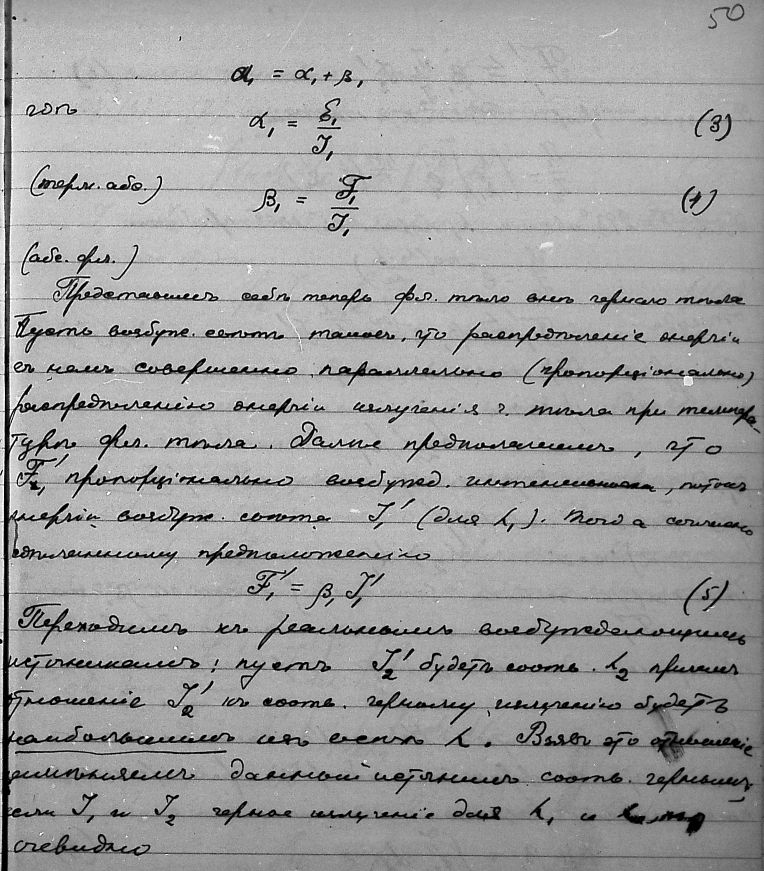 50
α₁ = α₁ + β₁
гдѣ
α₁ = ℰ₁/J₁ (3)
(терм. абс.)
β₁ = F₁/J₁ (4)
(абс. фл.)
Представимъ себѣ теперь фл. тѣло внѣ чернаго тѣла
Пусть возбужд. свѣтъ таковъ, что распредѣленіе энергіи
въ немъ совершенно параллельно (пропорціонально)
распредѣленію энергіи излученія ч. тѣла при темпера-
турѣ фл. тѣла. Далѣе предполагаемъ, что
F₁' пропорціонально возбужд. интенсивности, потокъ
энергіи возбужд. свѣта J₁' (для λ₁). Тогда согласно
сдѣланному предположенію
F₁' = β₁ J₁' (5)
Переходимъ къ реальнымъ возбуждающимъ
источникамъ; пусть J₂' будетъ соотв. λ₂ причемъ
отношеніе J₂' къ соотв. черному излученію будетъ
наибольшимъ изъ всѣхъ λ. Взявъ это отношеніе
замѣняемъ данный источникъ соотв. чернымъ,
если J₁ и J₂ черное излученіе для λ₁ и
очевидно